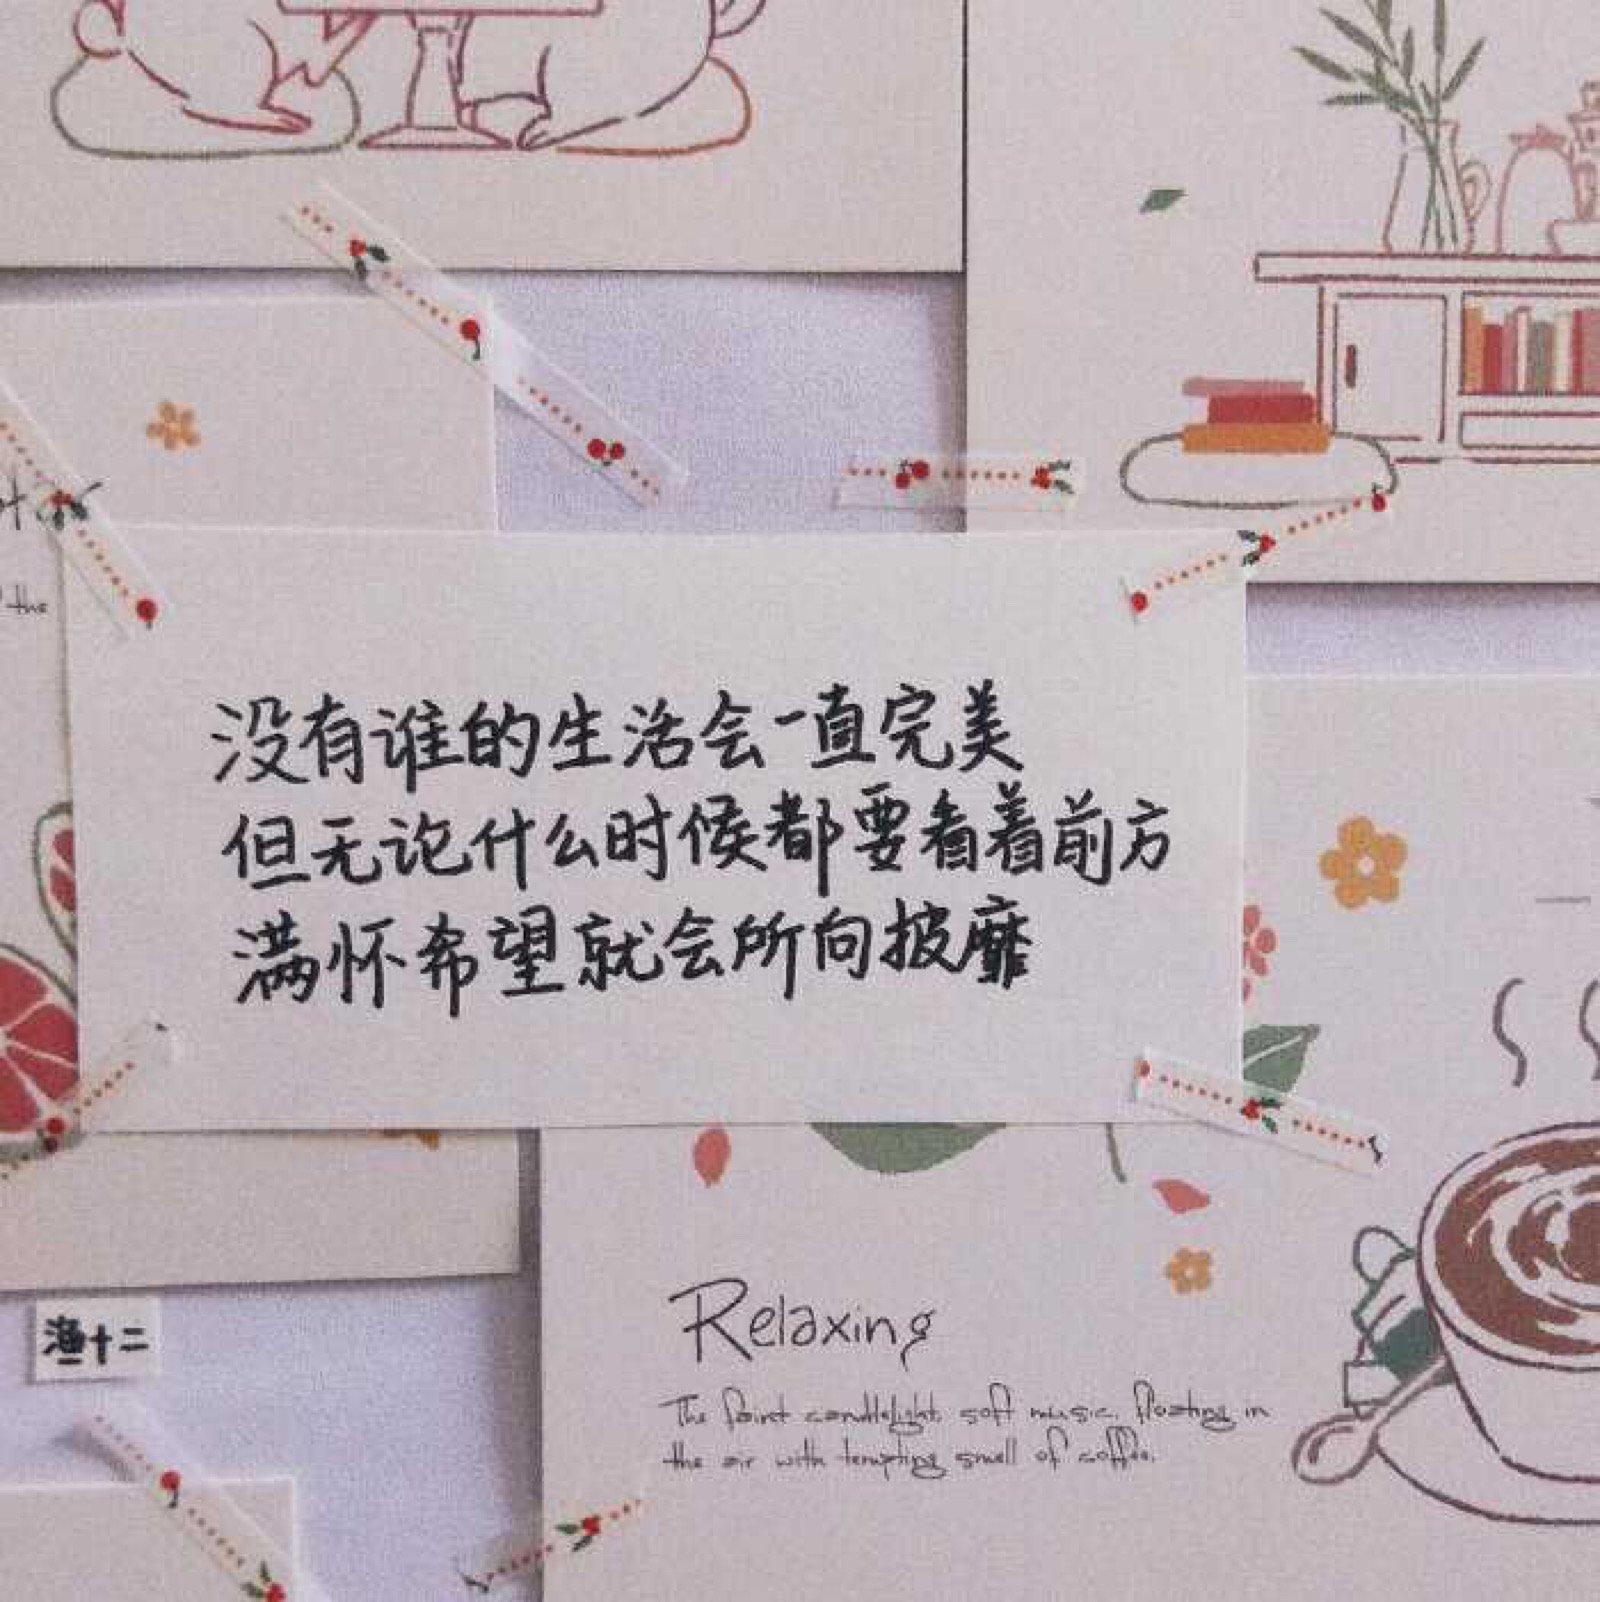 the
没有谁的生活会一直完美
但无论什么时候都要看着前方
满怀希望就会所向披靡
Relaxing
The faint candlelight, soft music, floating in
the air with tempting smell of coffee.
十二